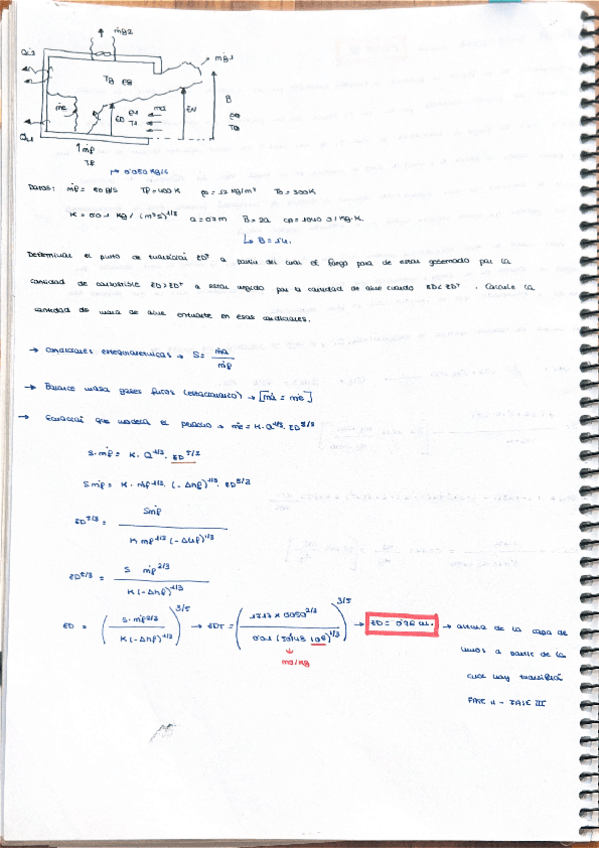 ṁg2
ṁg1
Tg eg
ṁe
ZD
e1
T1
ṁa
ZN
B
eo
To
ṁf
TF
↳ 0'050 kg/s
Datos: ṁf = 50 g/s TF = 400 K To = 300K
K = 0'01 kg/(m⁵s)^1/3 a = 0'7m B = 2a cp = 1040 J/kg·K.
↳ B = 1'4.
Determinar el punto de transición ZDT a partir del cual el fuego pasa de estar gobernado por la
cantidad de combustible ZD>ZDT a estar regido por la cantidad de aire cuando ZD<ZDT. Calcule la
cantidad de masa de aire entrante en esas condiciones.
→ Condiciones estequiométricas → S = ṁa / ṁf
→ Balance masa gases fríos (estacionario) → [ṁa = ṁe]
→ Ecuación que modela el penacho → ṁe = K·Q^1/3·ZD^5/3
S·ṁf = K·Q^1/3·ZD^5/3
Sṁf = K·ṁf^1/3·(-Δhf)^1/3·ZD^5/3
ZD^5/3 = Sṁf / K ṁf^1/3 (-Δhf)^1/3
ZD^5/3 = S ṁf^2/3 / K(-Δhf)^1/3
ZD = (S·ṁf^2/3 / K(-Δhf)^1/3)^3/5 → ZDT = ( 0'050^2/3 / 0'01 ( 10⁶)^1/3)^3/5 → ZD = 0'96 m. → altura de la capa de
humos a partir de la
MJ/kg
cual hay transición
FASE II - FASE III